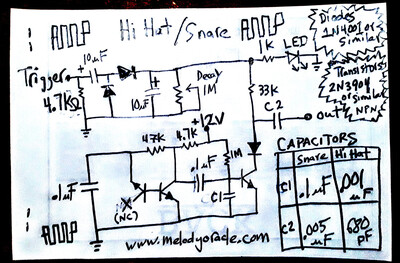 Hi Hat/Snare
Diodes
1N4001 or
Similar
1K LED
10uF
Trigger
4.7KΩ
+
10uF
Decay
1M
33K
Transistors
2N3904
or similar
NPN
C2
out
+12V
47K
4.7K
.1uF
1M
.1uF
C1
X
(NC)
CAPACITORS
Snare Hi Hat
C1 .1uF .001uF
C2 .005uF 680pF
www.melodyorade.com